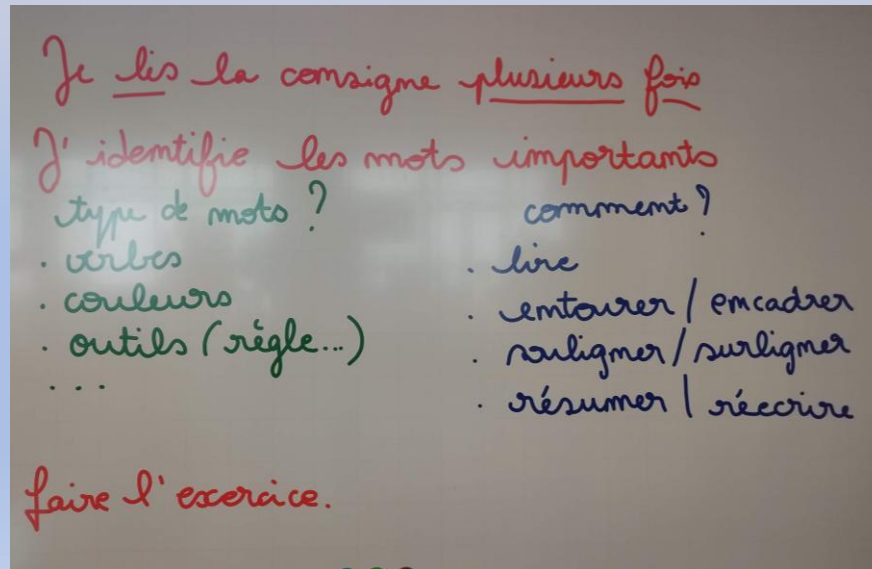 Je lis la consigne plusieurs fois
J'identifie les mots importants
type de mots ?
. verbes
. couleurs
. outils (règle...)
. . .
comment ?
. lire
. entourer / encadrer
. souligner / surligner
. résumer / réecrire
faire l'exercice.